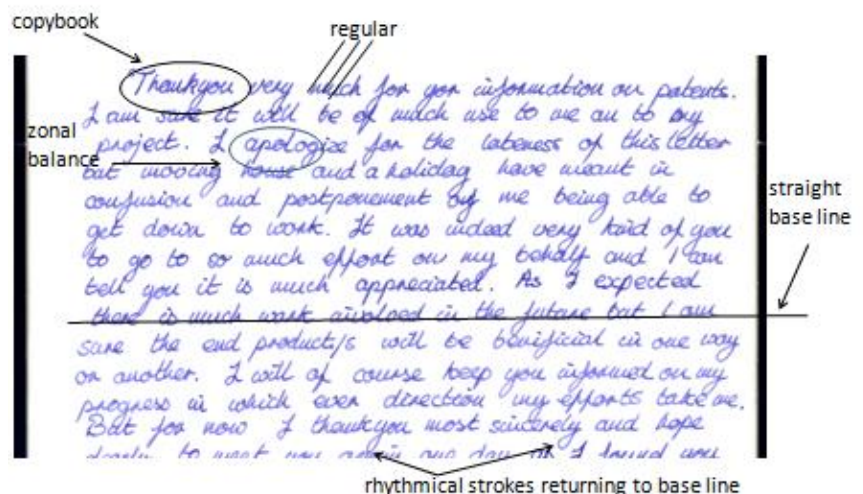 copybook
regular
Thankyou very much for yor information on patents.
I am sure it will be of much use to me an to my
zonal balance
project. I apologize for the lateness of this letter
but mooving house and a holiday have meant in
confusion and postponement of me being able to
straight base line
get down to work. It was indeed very kind of you
to go to so much effort on my behalf and I can
tell you it is much appreciated. As I expected
there is much work involved in the future but I am
sure the end product/s will be benificial in one way
or another. I will of course keep you informed on my
progress in which ever direction my efforts take me.
But for now I thankyou most sincerely and hope
to meet you again one day
rhythmical strokes returning to base line